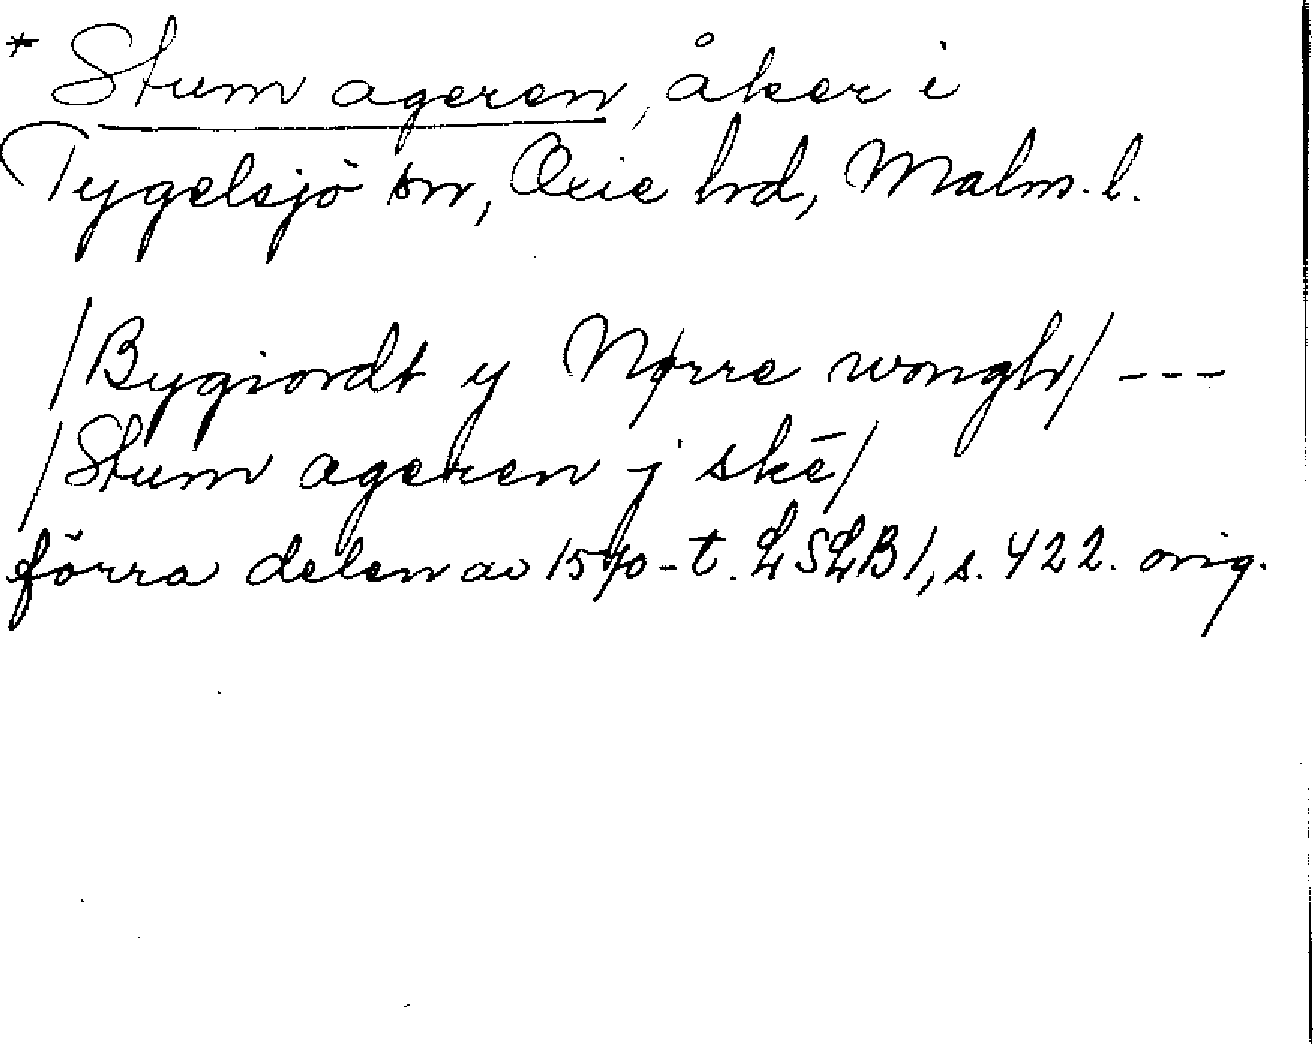 * Stum ageren, åker i
Tygelsjö sn, Oxie hd, Malm. l.
/Bygiordt y Nørre wongh/ ---
/Stum ageren j skē/
förra delen av 1570-t. LSLB 1, s. 422. orig.